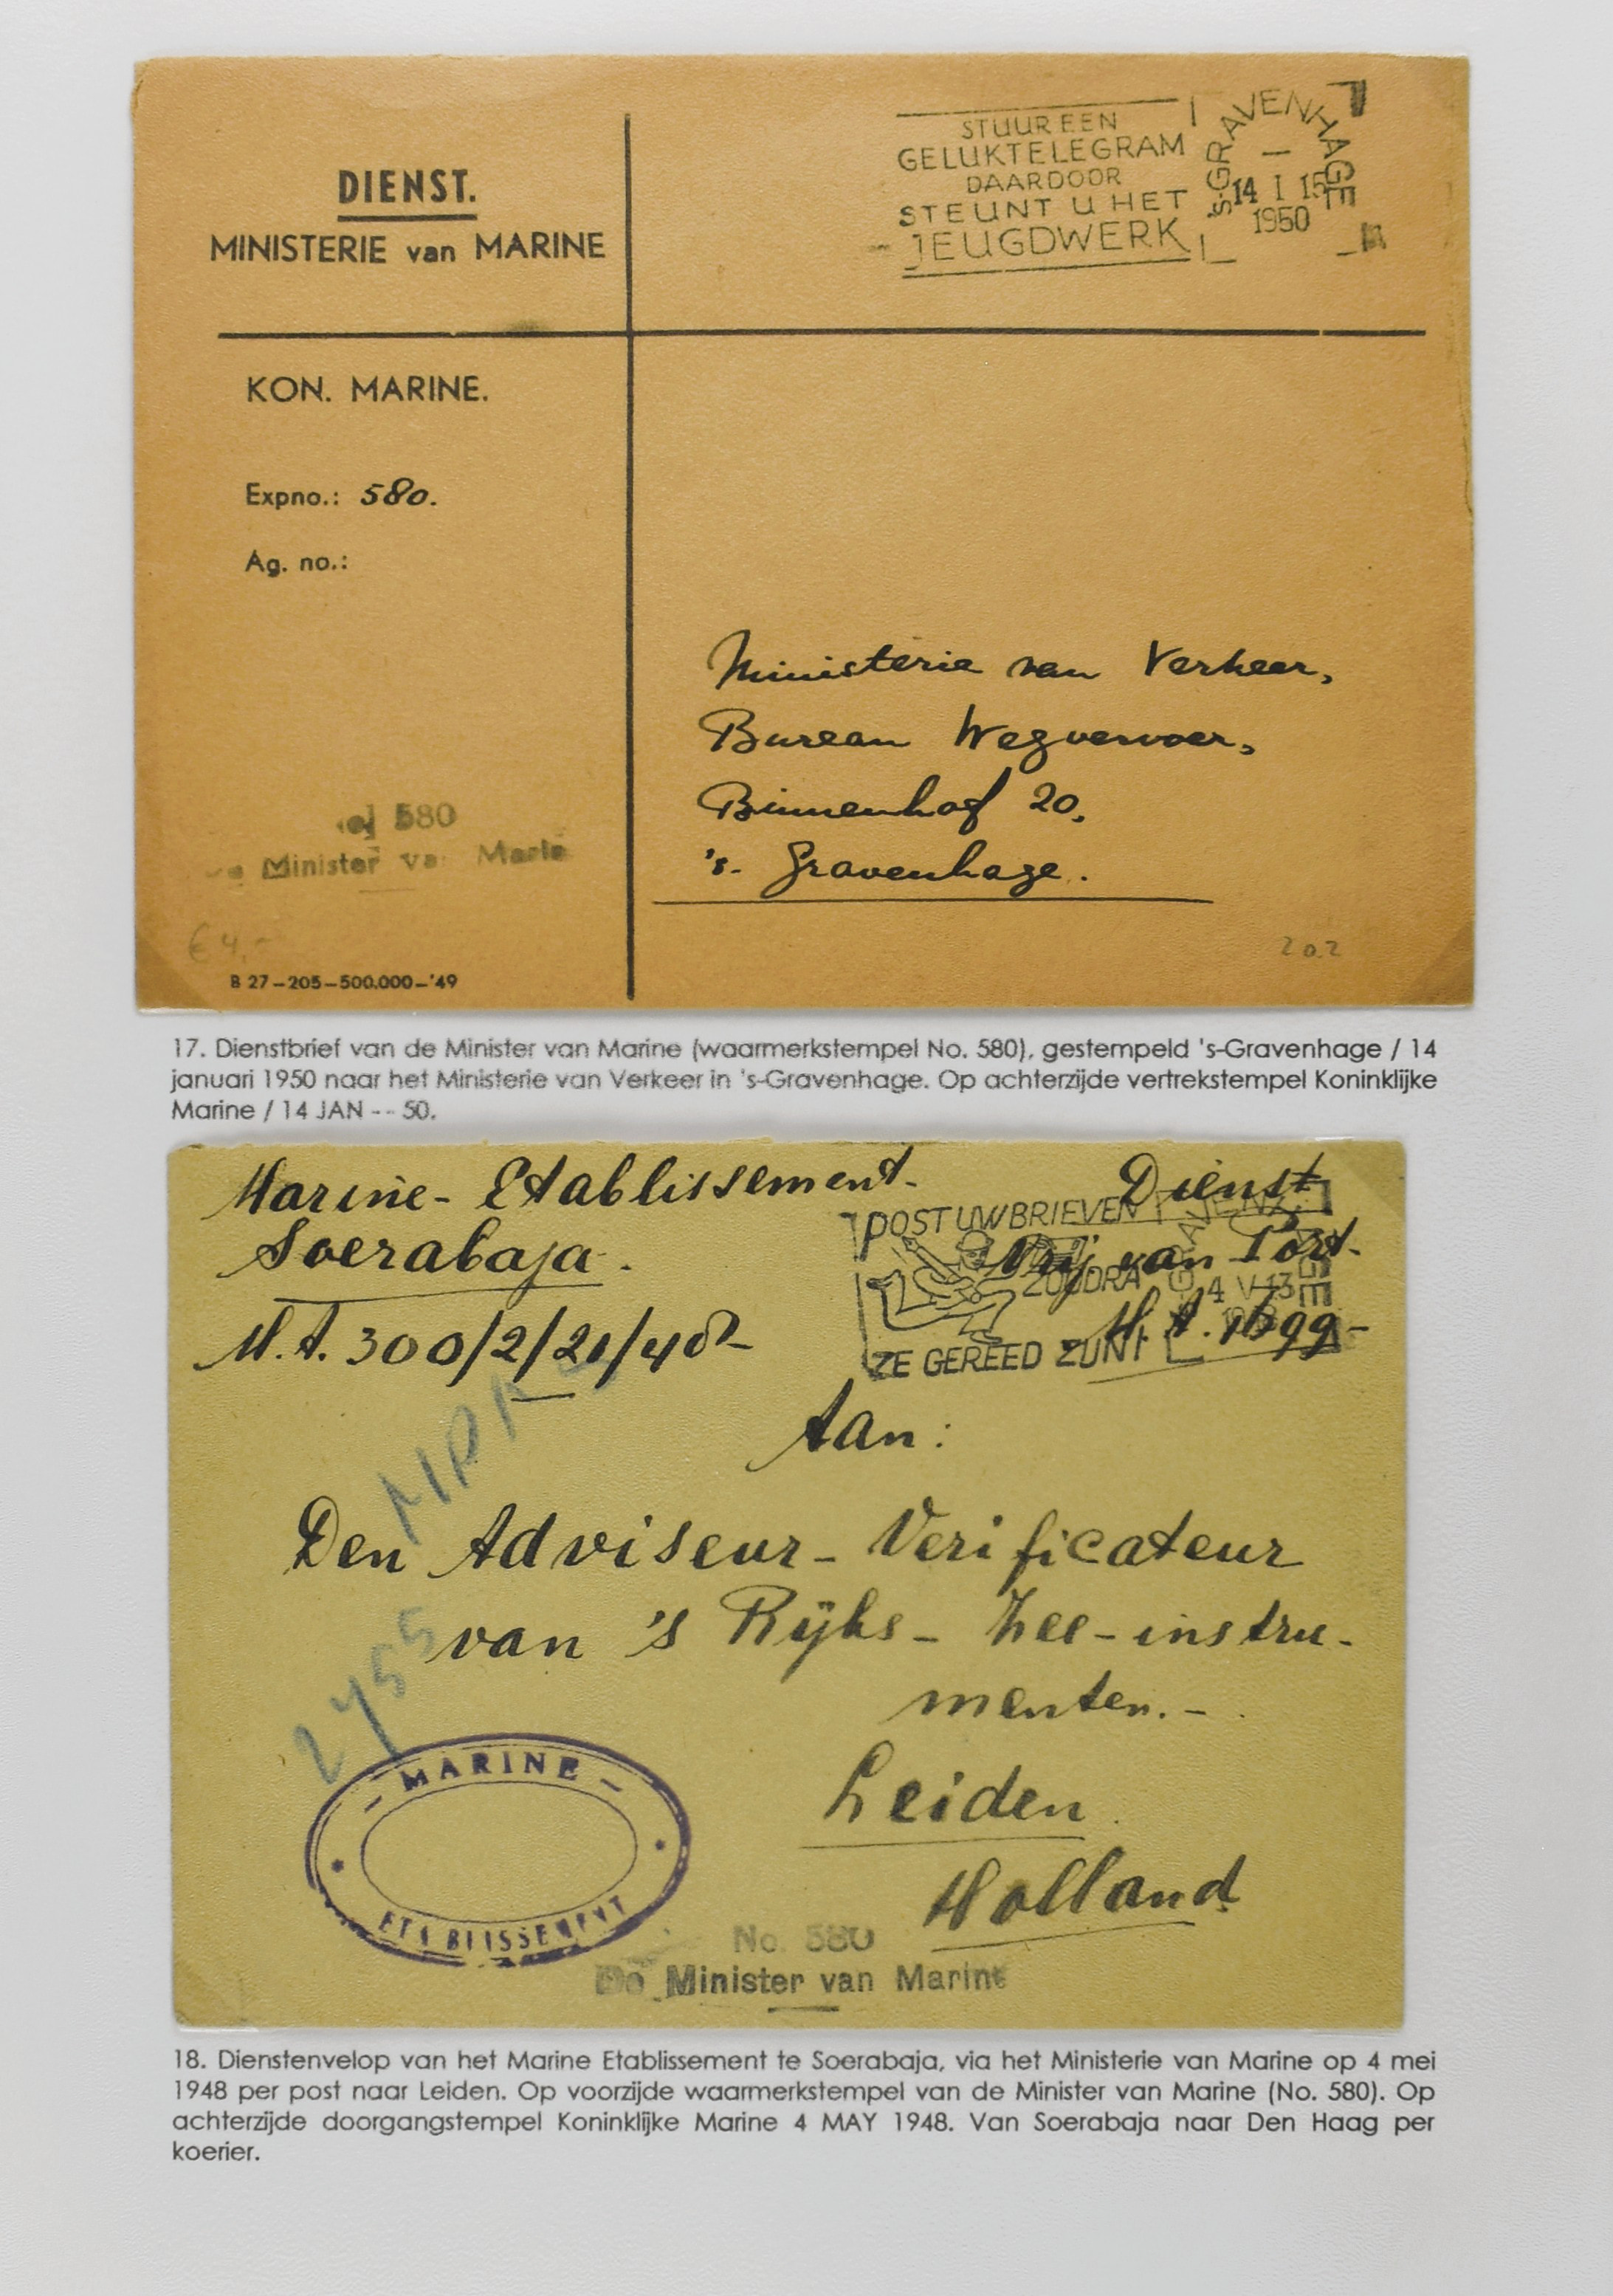 DIENST.
MINISTERIE van MARINE
STUUR EEN
GELUKTELEGRAM
DAARDOOR
STEUNT U HET
JEUGDWERK
's-GRAVENHAGE
14 I 15
1950
KON. MARINE.
Expno.: 580.
Ag. no.:
Ministerie van Verkeer,
Bureau Wegvervoer,
Binnenhof 20,
's-Gravenhage.
580
Minister va Marie
€ 4,-
202
B 27-205-500.000-'49
17. Dienstbrief van de Minister van Marine (waarmerkstempel No. 580), gestempeld 's-Gravenhage / 14
januari 1950 naar het Ministerie van Verkeer in 's-Gravenhage. Op achterzijde vertrekstempel Koninklijke
Marine / 14 JAN -- 50.
Marine-Etablissement-
Soerabaja.
M.A. 300/2/21/48-
Dienst
Vrij van Port.
POST UW BRIEVEN
ZOODRA
ZE GEREED ZIJN!
4 V 13
Aan:
Den Adviseur-Verificateur
van 's Rijks-Zee-instru-
menten.-
Leiden
Holland
2455
MARINE
ETABLISSEMENT
No. 580
De Minister van Marine
18. Dienstenvelop van het Marine Etablissement te Soerabaja, via het Ministerie van Marine op 4 mei
1948 per post naar Leiden. Op voorzijde waarmerkstempel van de Minister van Marine (No. 580). Op
achterzijde doorgangstempel Koninklijke Marine 4 MAY 1948. Van Soerabaja naar Den Haag per
koerier.